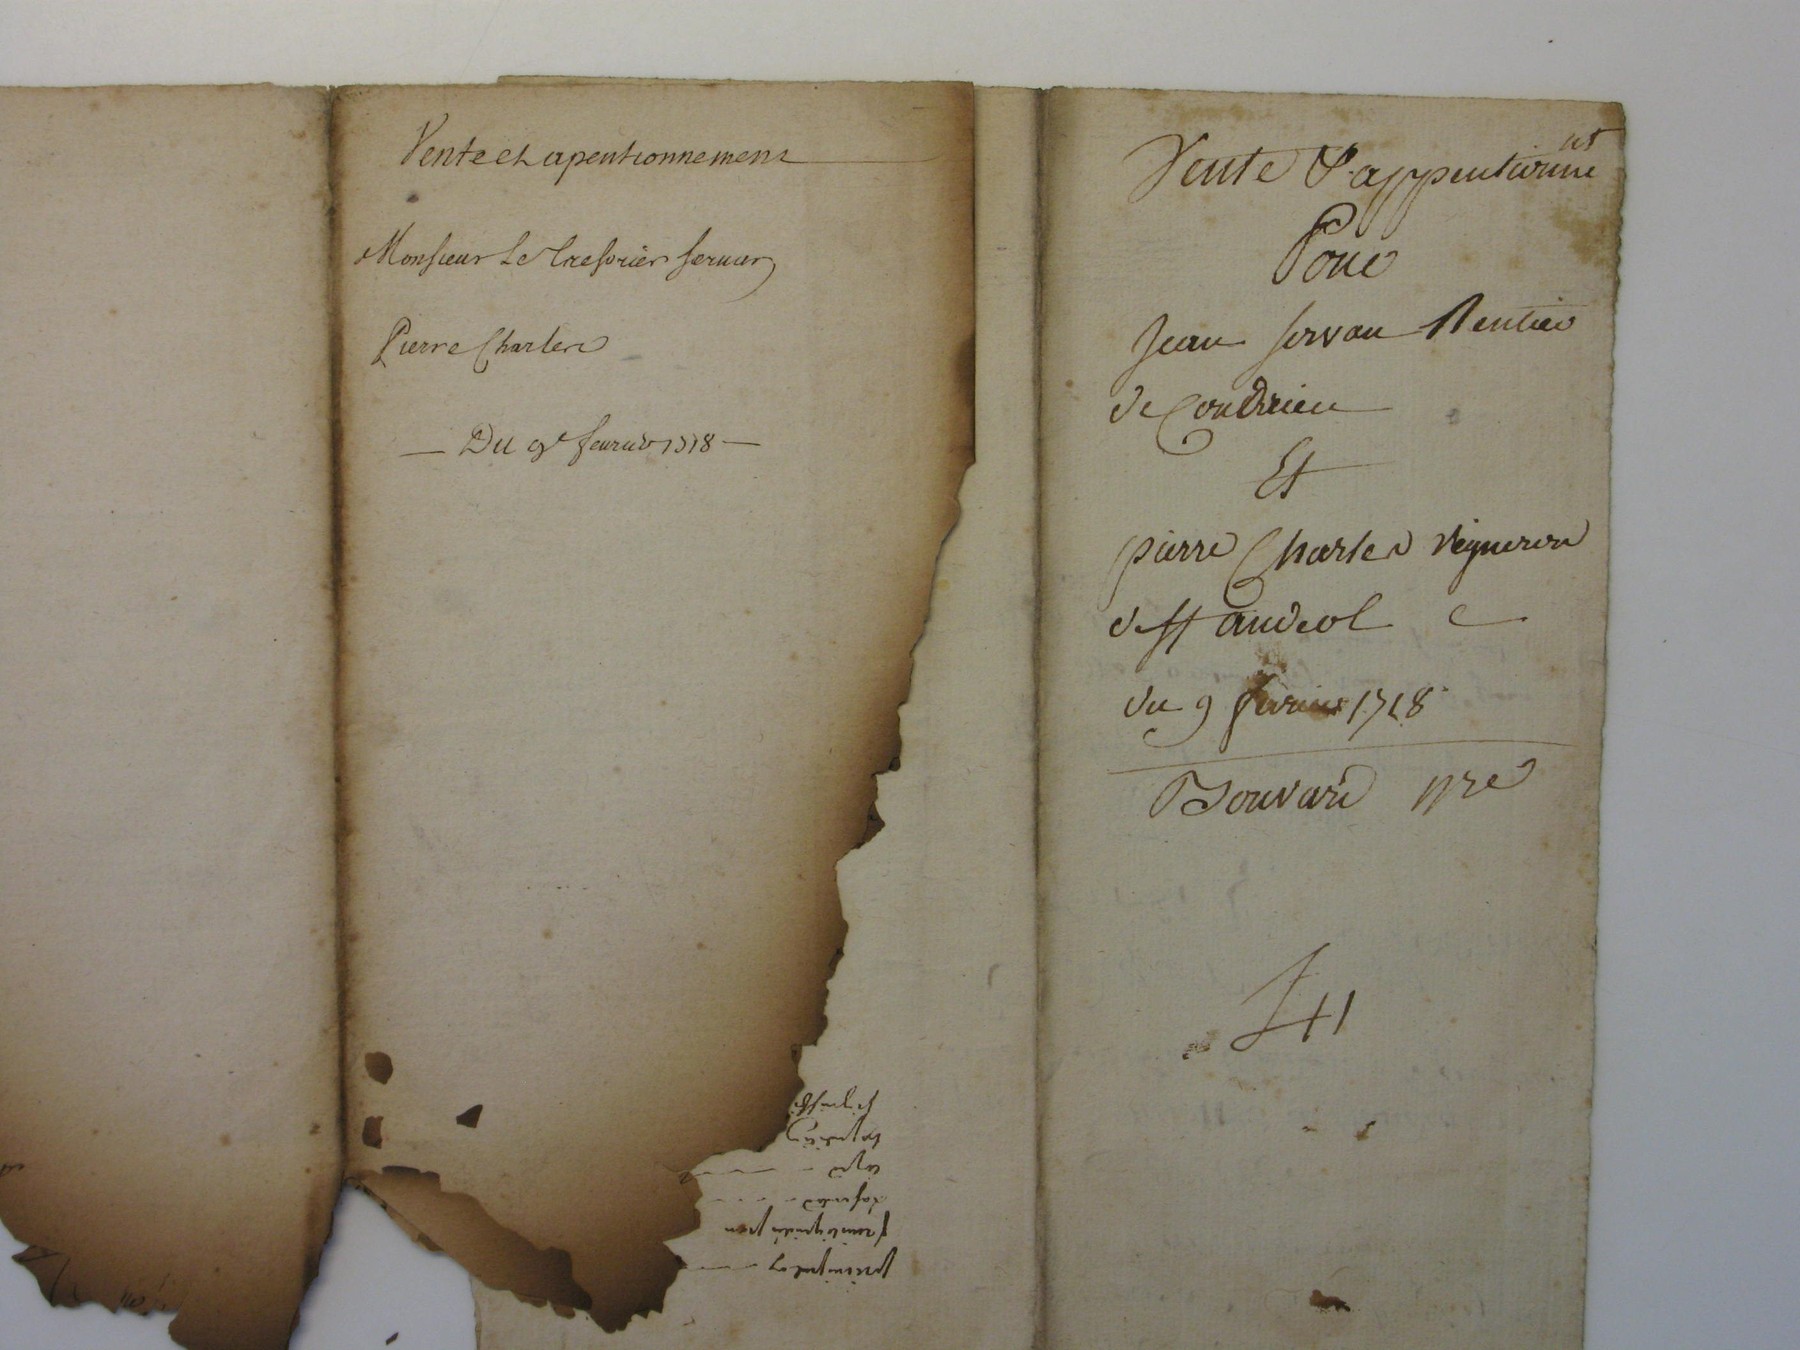 Vente et apentionnement
Monsieur Le Tresorier servan
Pierre Charlen
Du 9e feurier 1718
Vente & appentionne nt
Pour
Jean servan Rentier
de Condrieu
Et
pierre Charles vigneron
de st andeol
du 9 fevrier 1718
Bouvard nre
41